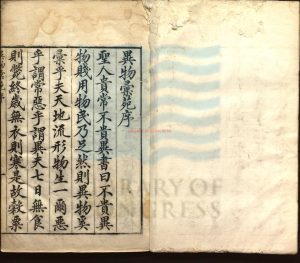 異物彙苑序
聖人貴常不貴異書曰不貴異
物賤用物民乃足然則異物奚
彙乎夫天地流形物生一爾惡
乎謂常惡乎謂異夫七日無食
則斃終歲無衣則寒是故穀粟
LIBRARY OF
CONGRESS